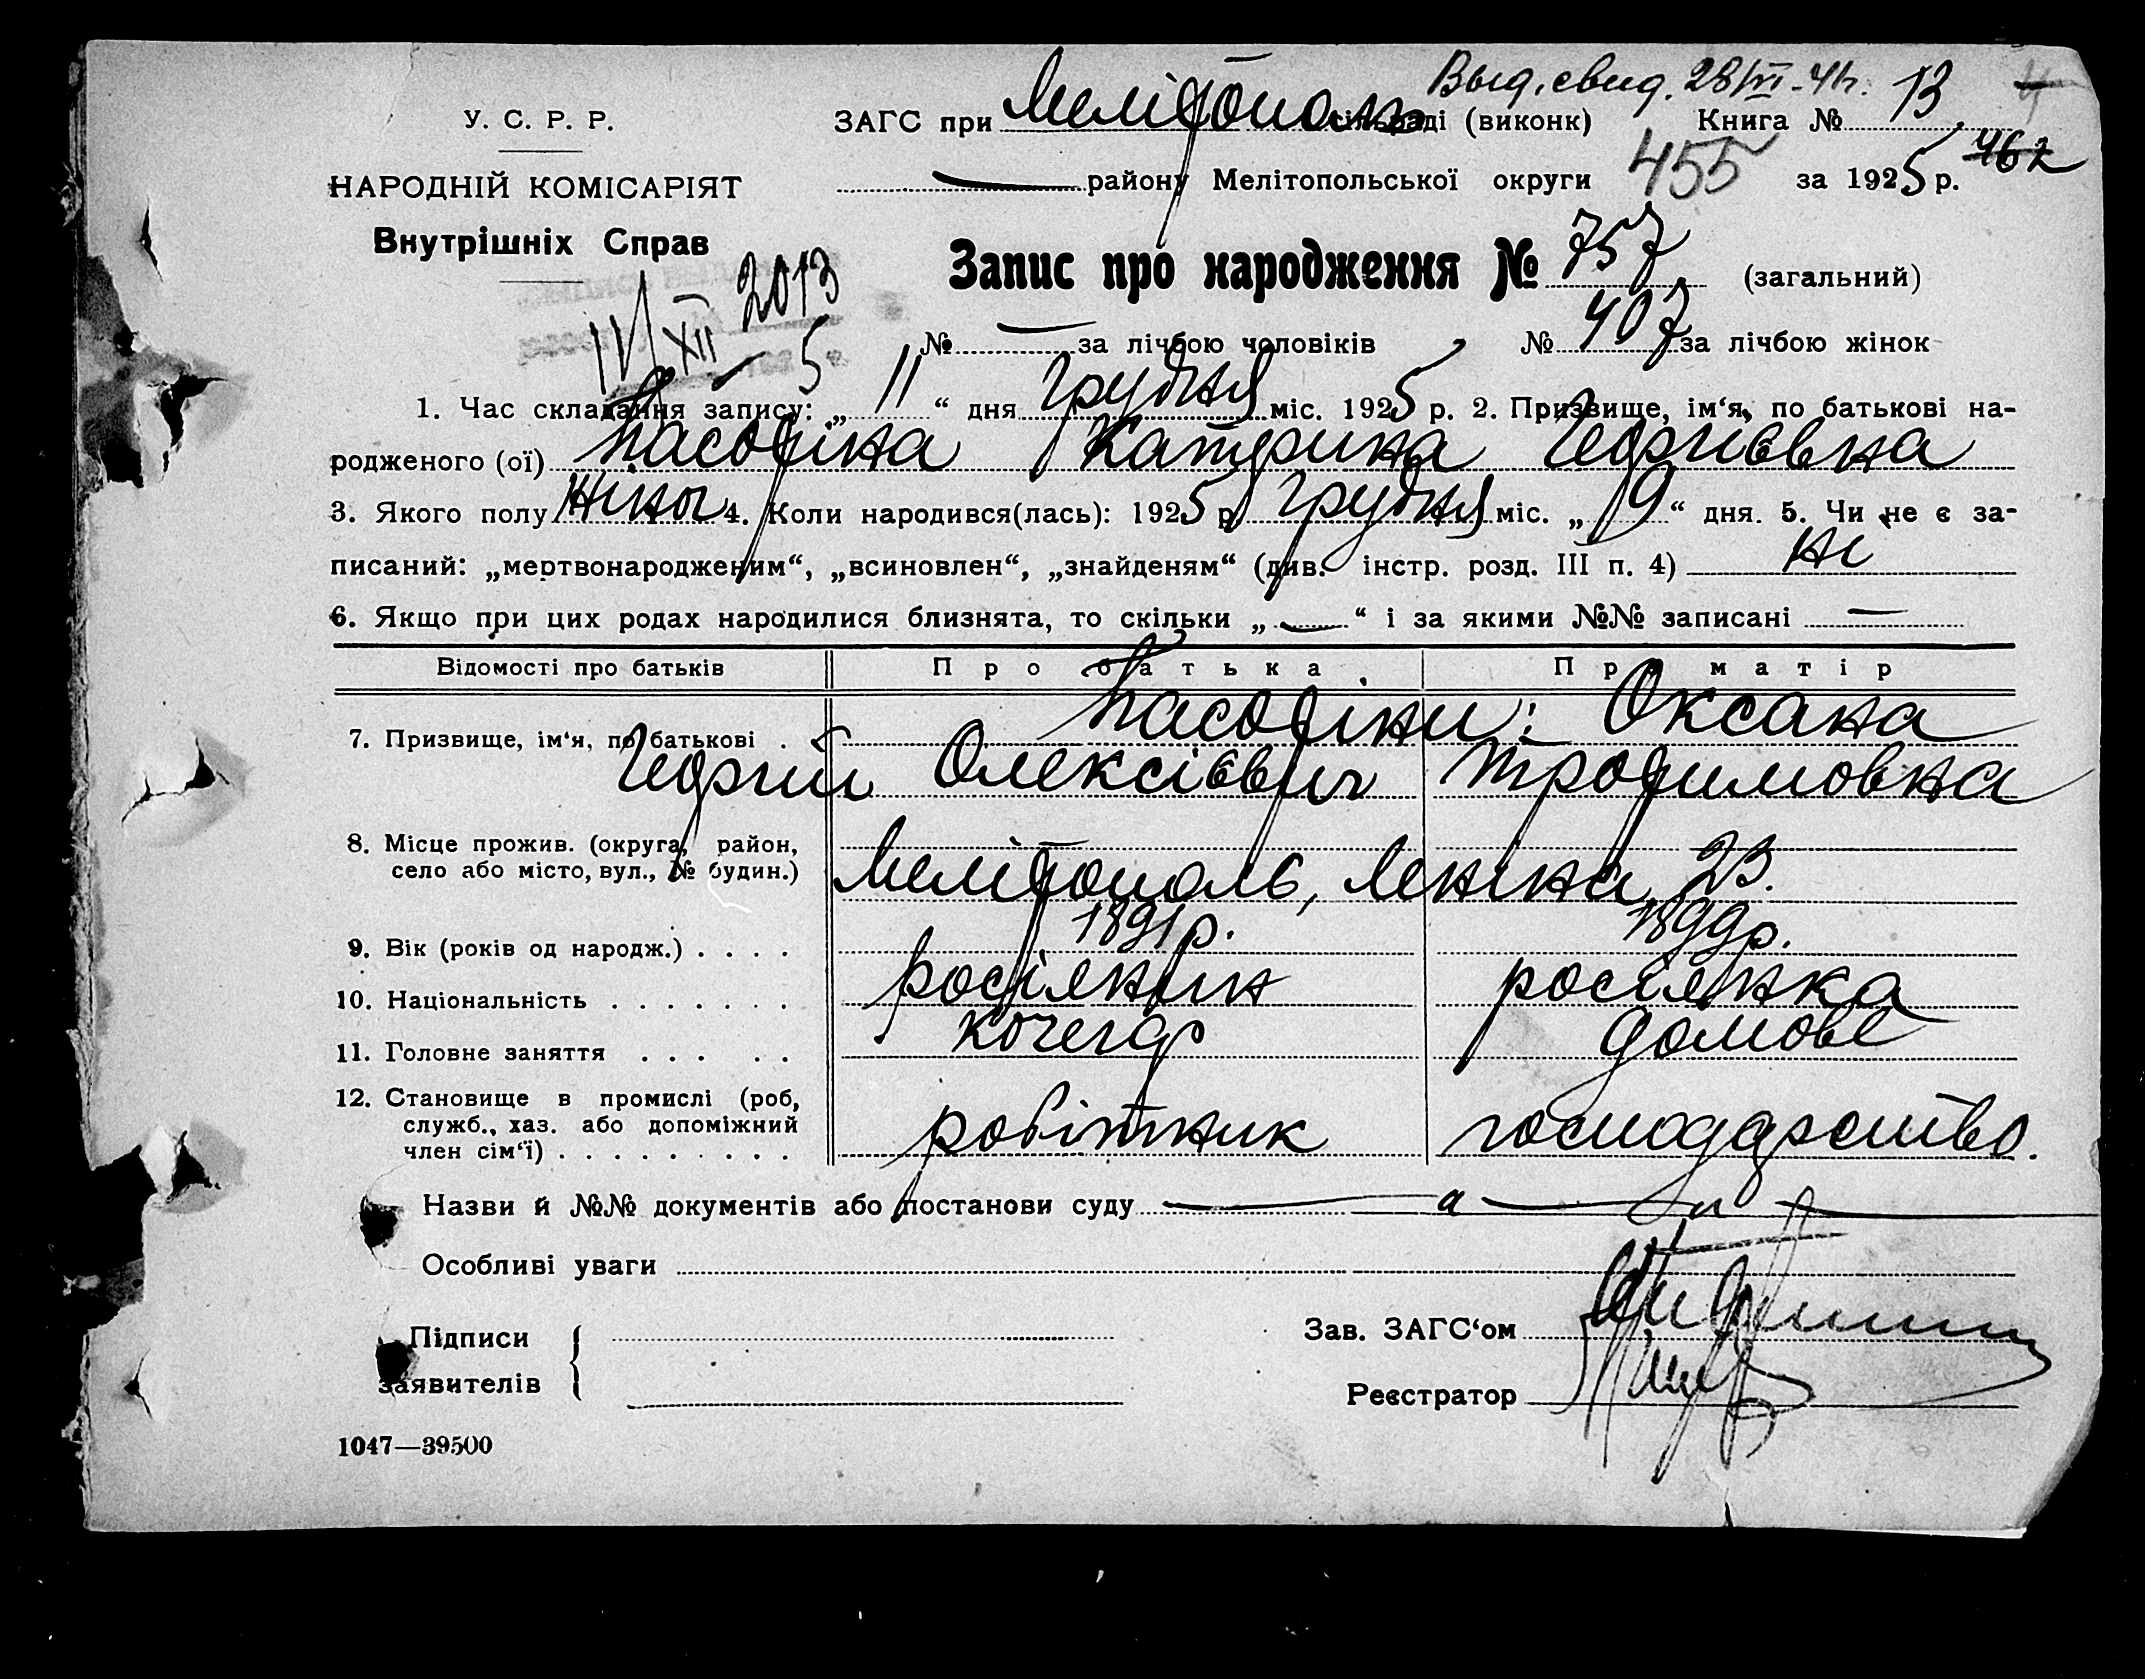 Выд. свид. 28/VI-41г.
У. С. Р. Р.
ЗАГС при Мелітополь сільраді (виконк) Книга № 13
НАРОДНІЙ КОМІСАРІЯТ
— району Мелітопольської округи 455 за 1925 р. 462
Внутрішніх Справ
Запис про народження № 757 (загальний)
11/XII-5 2013
№ — за лічбою чоловіків № 407 за лічбою жінок
1. Час складання запису: „ 11 “ дня Грудня міс. 1925 р. 2. Призвище, ім‘я, по батькові на-
родженого (ої) Катерина Георгієвна
3. Якого полу жіноч 4. Коли народився(лась): 1925 р. Грудня міс. „ 9 “ дня. 5. Чи не є за-
писаний: „мертвонародженим“, „всиновлен“, „знайденям“ (див. інстр. розд. III п. 4) ні
6. Якщо при цих родах народилися близнята, то скільки „ — “ і за якими №№ записані —
Відомості про батьків Про батька Про матір
7. Призвище, ім‘я, по батькові . Оксана
Георгій Олексієвич Трофимовна
8. Місце прожив. (округа, район,
село або місто, вул., № будин.) Мелітополь, Леніна 23.
9. Вік (років од народж.) . . . . 1891р. 1899р.
10. Національність . . . . . . . росіянин росіянка
11. Головне заняття . . . . . кочегар домове
12. Становище в промислі (роб,
служб., хаз. або допоміжний
член сім‘ї) . . . . . . . . . робітник господарство.
Назви й №№ документів або постанови суду
Особливі уваги
Підписи
заявителів
Зав. ЗАГС‘ом
Реєстратор
1047—39500